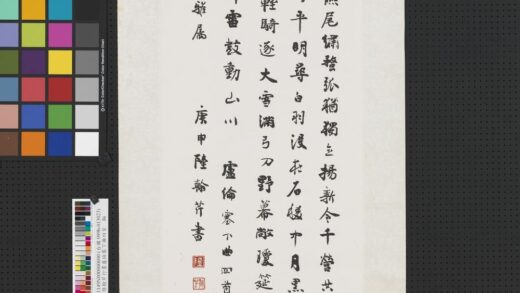 尾繡蝥弧猶獨立揚新令千營共
平明尋白羽沒在石稜中月黑
輕騎逐大雪滿弓刀野幕敞瓊筵
雷鼓動山川 盧綸塞下曲四首
雅属 庚申陸翰芹書